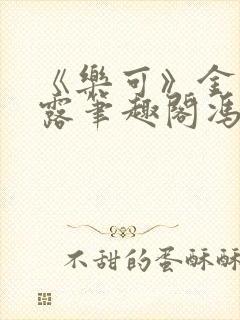 《樂可》金
露笔趣閣馮
不甜的蛋酥酥